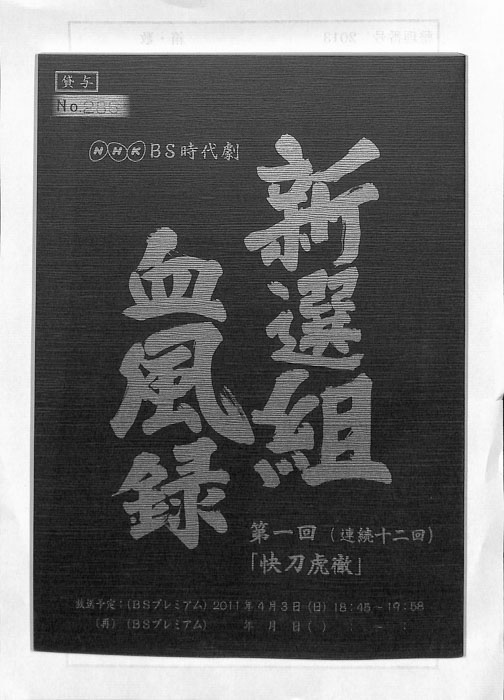 貸与
No.205
NHK BS時代劇
新選組
血風録
第一回（連続十二回）
「快刀虎徹」
放送予定：(BSプレミアム) 2011年4月3日(日) 18:45～19:58
(再) (BSプレミアム) 年 月 日( ) : ～ :